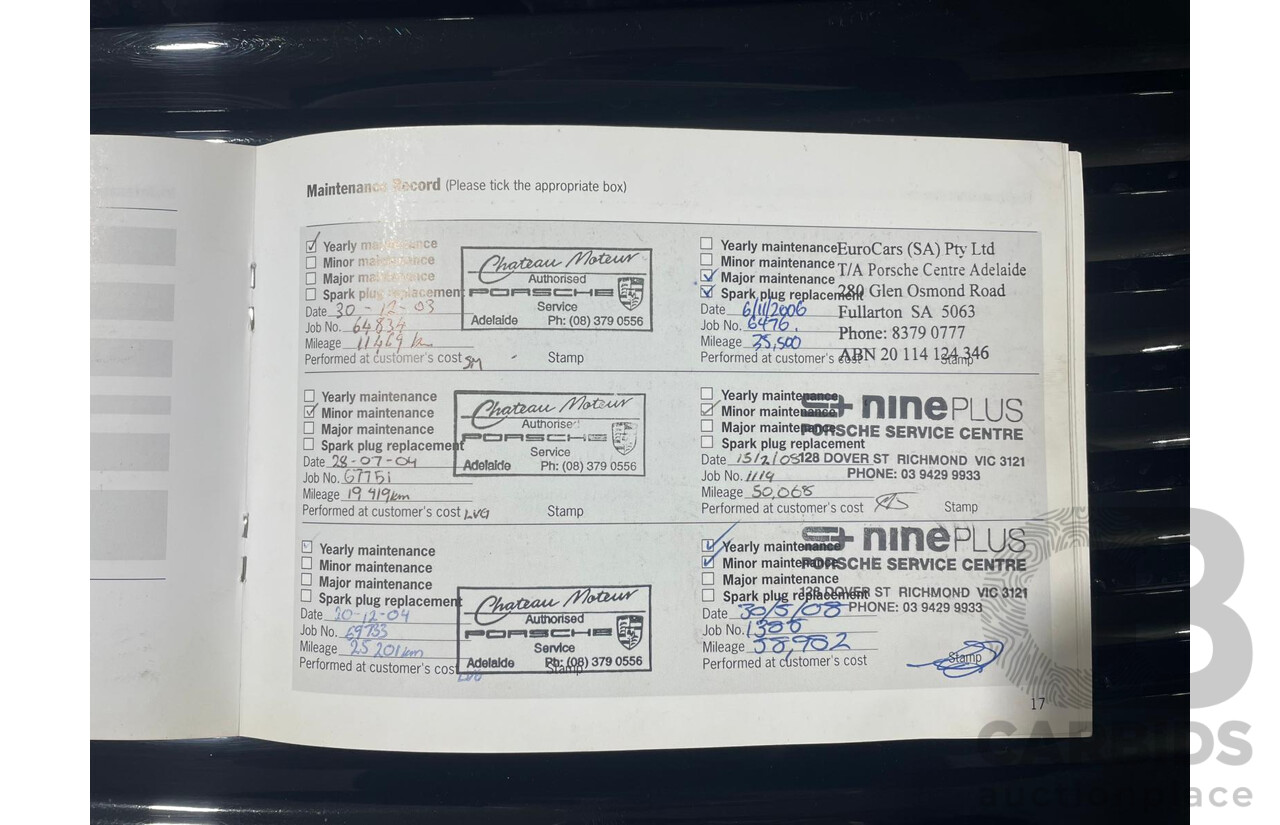 Maintenance Record (Please tick the appropriate box)
Yearly maintenance
Minor maintenance
Major maintenance
Spark plug replacement
Date 30-12-03
Job No. 64834
Mileage 11469 km
Performed at customer's cost SM
Stamp
Chateau Moteur
Authorised
PORSCHE
Service
Adelaide Ph: (08) 379 0556
Yearly maintenance
Minor maintenance
Major maintenance
Spark plug replacement
Date 28-07-04
Job No. 67751
Mileage 19 419km
Performed at customer's cost LVG
Stamp
Chateau Moteur
Authorised
PORSCHE
Service
Adelaide Ph: (08) 379 0556
Yearly maintenance
Minor maintenance
Major maintenance
Spark plug replacement
Date 20-12-04
Job No. 69733
Mileage 25 201km
Performed at customer's cost
Stamp
Chateau Moteur
Authorised
PORSCHE
Service
Adelaide Ph: (08) 379 0556
Yearly maintenance
Minor maintenance
Major maintenance
Spark plug replacement
Date 6/11/2006
Job No. 6476.
Mileage 35,500
Performed at customer's cost
Stamp
EuroCars (SA) Pty Ltd
T/A Porsche Centre Adelaide
280 Glen Osmond Road
Fullarton SA 5063
Phone: 8379 0777
ABN 20 114 124 346
Yearly maintenance
Minor maintenance
Major maintenance
Spark plug replacement
Date 15/2/08
Job No. 1119
Mileage 50,068
Performed at customer's cost
Stamp
ninePLUS
PORSCHE SERVICE CENTRE
128 DOVER ST RICHMOND VIC 3121
PHONE: 03 9429 9933
Yearly maintenance
Minor maintenance
Major maintenance
Spark plug replacement
Date 30/5/08
Job No. 1386
Mileage 58,982
Performed at customer's cost
Stamp
ninePLUS
PORSCHE SERVICE CENTRE
128 DOVER ST RICHMOND VIC 3121
PHONE: 03 9429 9933
17
CARBIDS
auctionplace